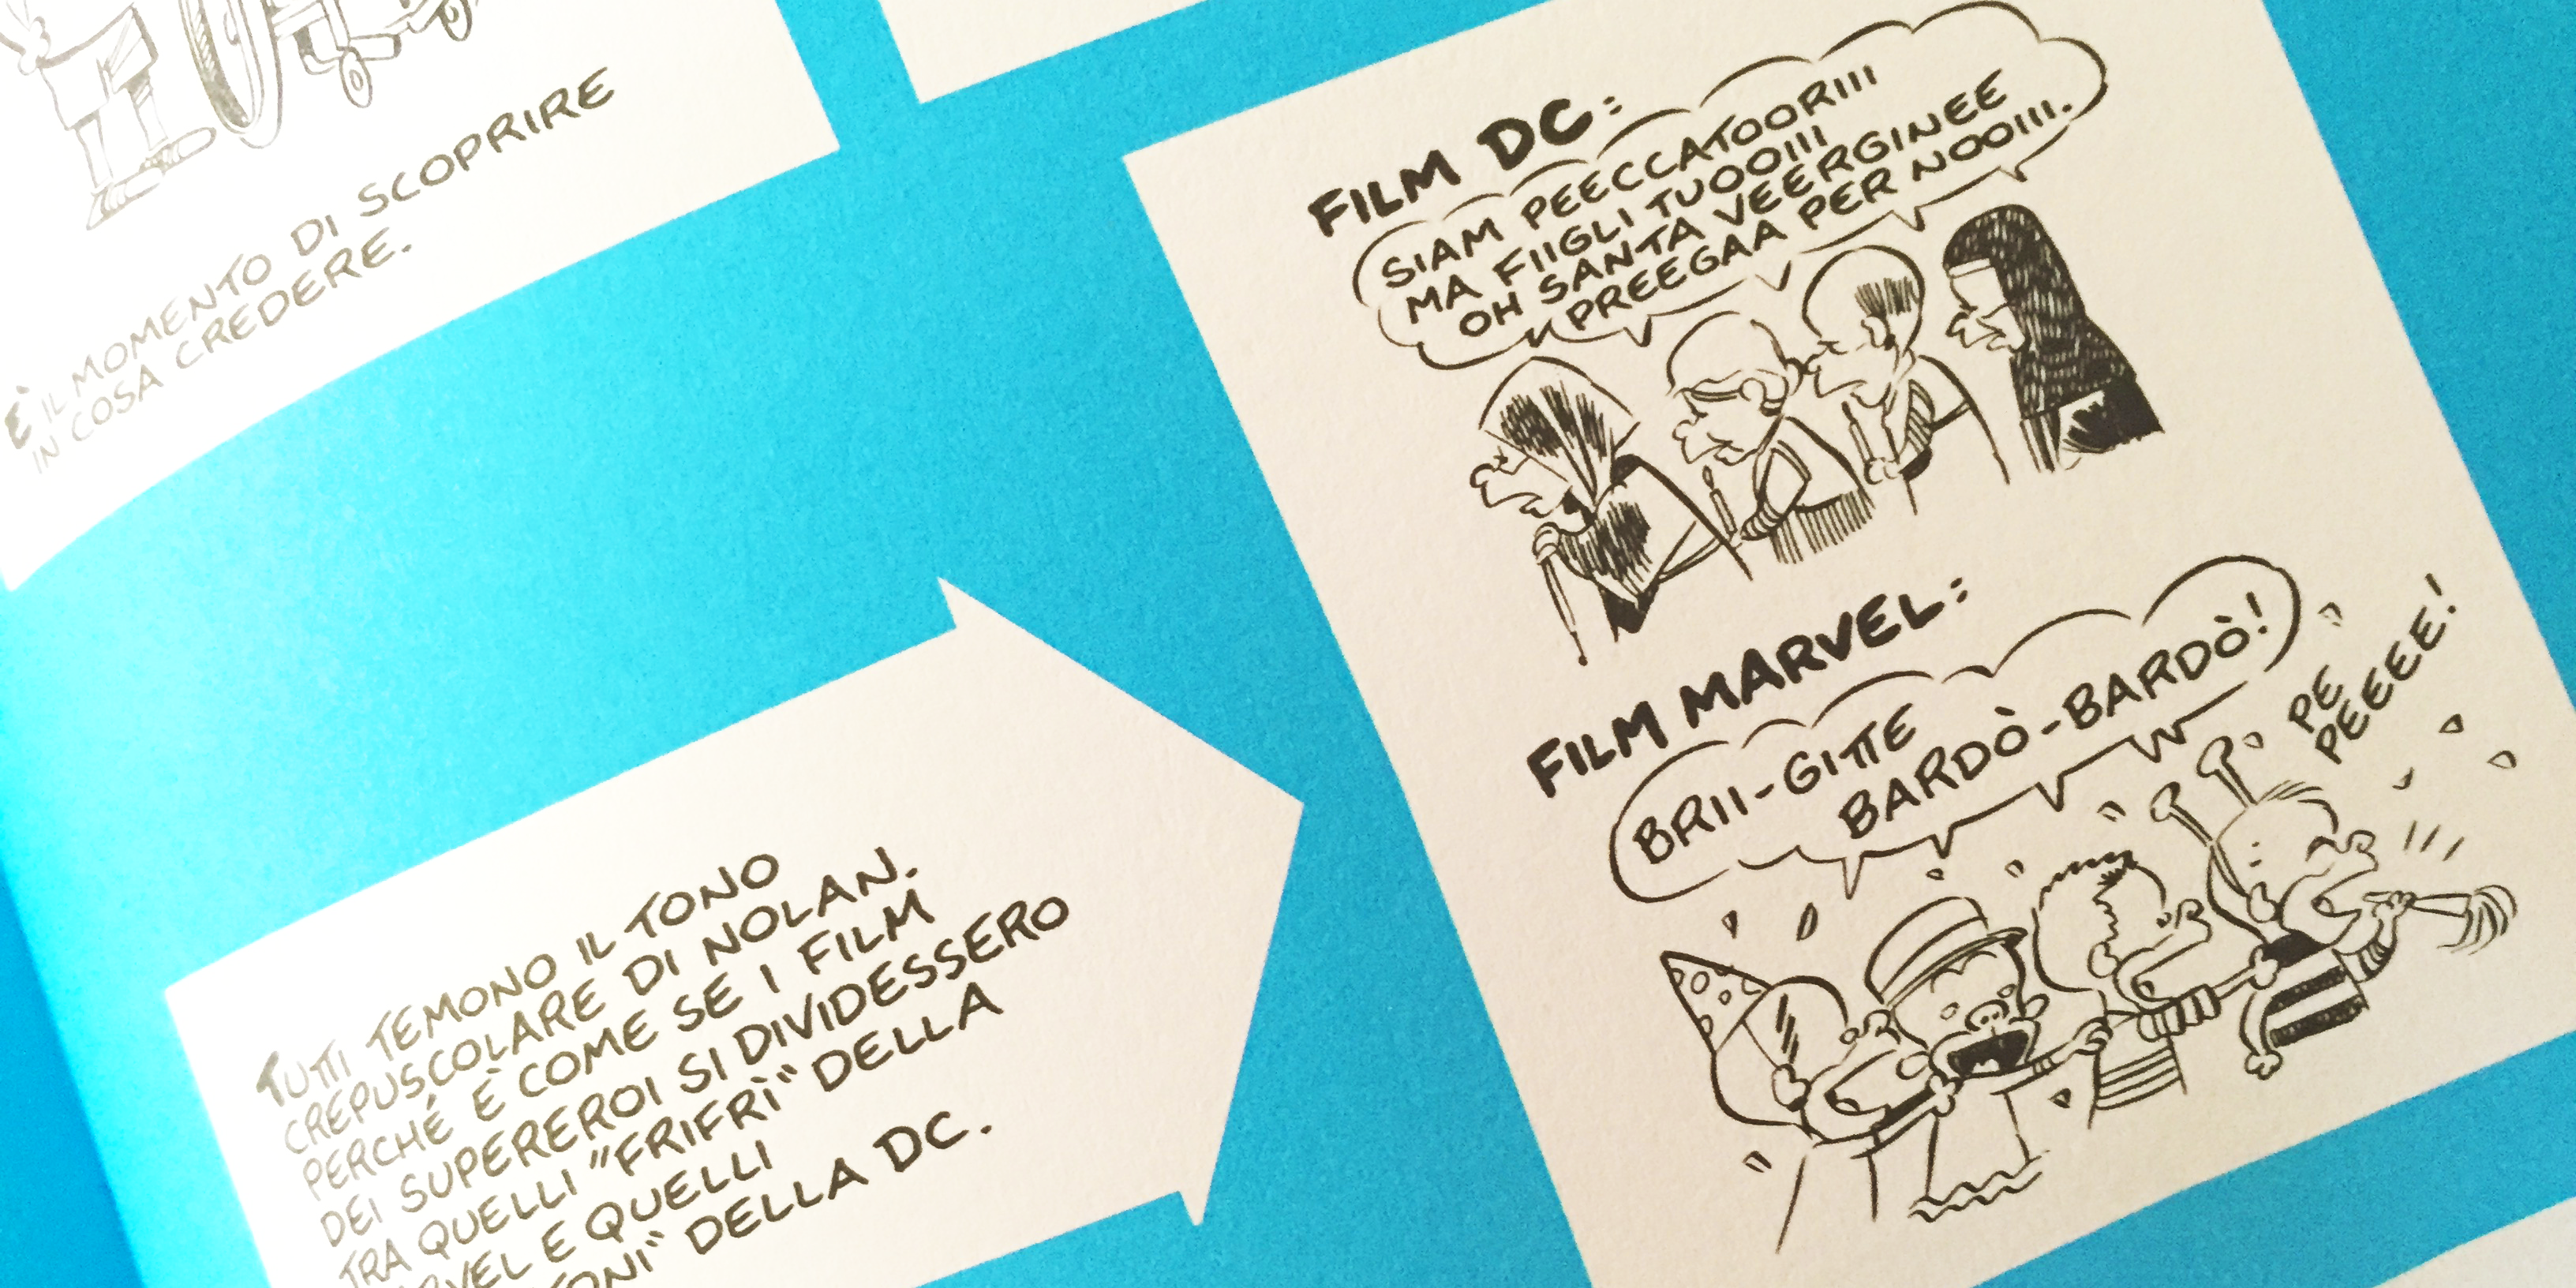 È IL MOMENTO DI SCOPRIRE
IN COSA CREDERE.
TUTTI TEMONO IL TONO
CREPUSCOLARE DI NOLAN.
PERCHÉ È COME SE I FILM
DEI SUPEREROI SI DIVIDESSERO
TRA QUELLI "FRIFRÌ" DELLA
E QUELLI
DELLA DC.
FILM DC:
SIAM PEECCATOORIII
MA FIIGLI TUOOIII
OH SANTA VEERGINEE
PREEGAA PER NOOIII.
FILM MARVEL:
BRII-GITTE
BARDÒ-BARDÒ!
PE
PEEEE!